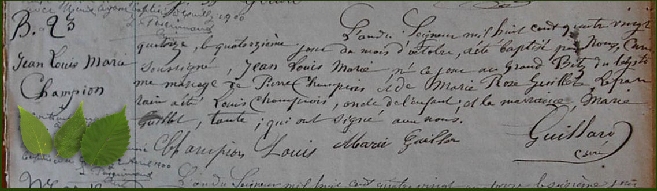 B. 23
Jean Louis Marie
Champion
L'an du Seigneur mil huit cent quatre vingt
quatorze, le quatorzième jour du mois d'octobre, a été baptisé par Nous, Curé
soussigné, Jean Louis Marie né ce jour au Grand du légiti
me mariage de Pierre Champion et de Marie Rose Guillot. Le par
rain a été Louis Champion, oncle de l'enfant, et la marraine, Marie
Guillot, tante, qui ont signé avec nous.
Champion Louis Marie Guillot Guillard
curé
L'an du Seigneur mil huit cent quatre vingt